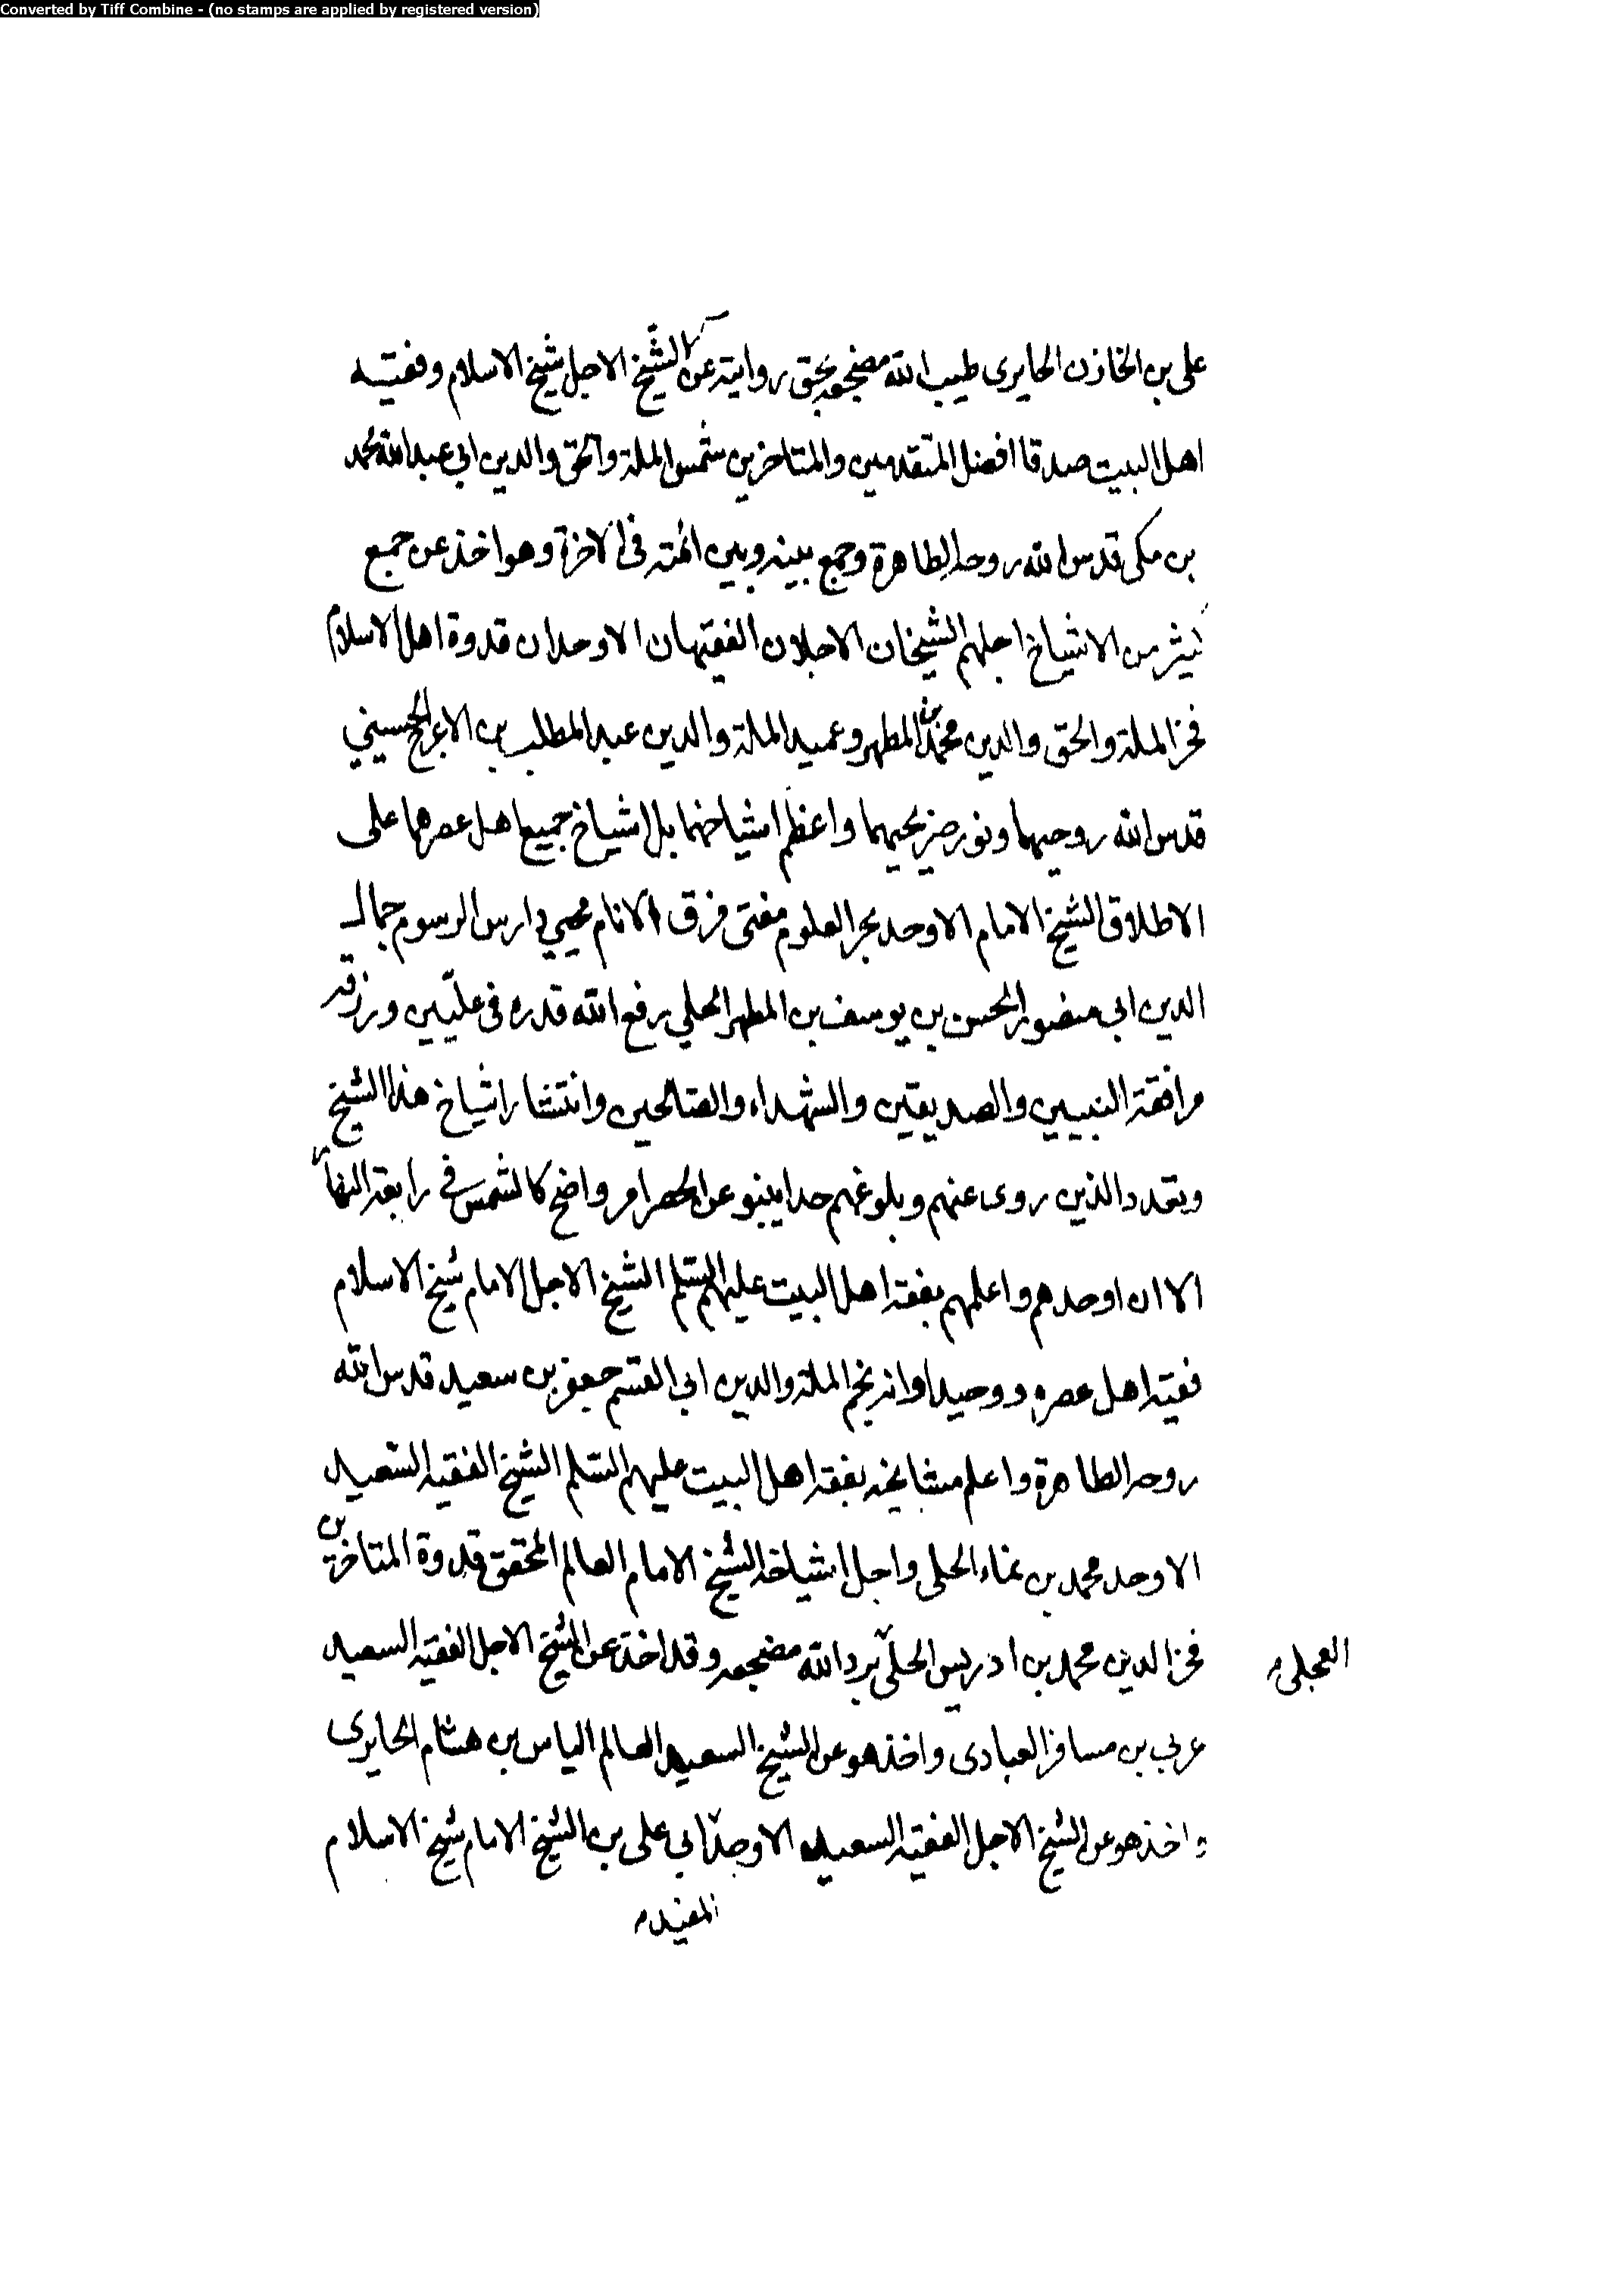 Converted by Tiff Combine - (no stamps are applied by registered version)
على بن الخازن الحايرى طيب الله مضجعه بحق روايته عن الشيخ الاجل شيخ الاسلام وفقيه
اهل البيت صدقا افضل المتقدمين والمتاخرين شمس الملة والحق والدين ابي عبد الله محمد
بن مكى قدس الله روحه الطاهرة وجمع بينه وبين ائمته فى الاخرة وهو اخذ عن جمع
كثير من الاشياخ اجلهم الشيخان الاجلان الفقيهان الاوحدان قدوة اهل الاسلام
فخر الملة والحق والدين محمد بن المطهر وعميد الملة والدين عبد المطلب بن الاعرج الحسيني
قدس الله روحيهما ونور ضريحيهما واعظم اشياخهما بل اشياخ جميع اهل عصرهما على
الاطلاق الشيخ الامام الاوحد بحر العلوم مفتى فرق الانام محيي دارس الرسوم جمال
الدين ابى منصور الحسن بن يوسف بن المطهر الحلي رفع الله قدره فى علّيين ورزقه
مرافقة النبيين والصديقين والشهداء والصالحين وانتشار اشياخ هذا الشيخ
وتعدد الذين روى عنهم وبلوغهم حدا ينبو عن الحصر امر واضح كالشمس في رابعة النهار
الا ان اوحدهم واعلمهم بفقه اهل البيت عليهم السّلم الشيخ الاجل الامام شيخ الاسلام
فقيه اهل عصره ووحيد اوانه نجم الملة والدين ابي القسم جعفر بن سعيد قدس الله
روحه الطاهرة واعلم مشايخه بفقه اهل البيت عليهم السّلم الشيخ الفقيه السّعيد
الاوحد محمد بن نماء الحلى واجل اشياخه الشيخ الامام العالم المحقق قدوة المتاخرين
فخر الدين محمد بن ادريس الحلّى برد الله مضجعه وقد اخذ عن الشيخ الاجل الفقيه السعيد
العجلى
عربي بن مسافر العبادى واخذ هو عن الشيخ السعيد العالم الياس بن هشام الحايرى
واخذ هو عن الشيخ الاجل الفقيه السعيد الاوحد ابي على بن الشيخ الامام شيخ الاسلام
المفيد